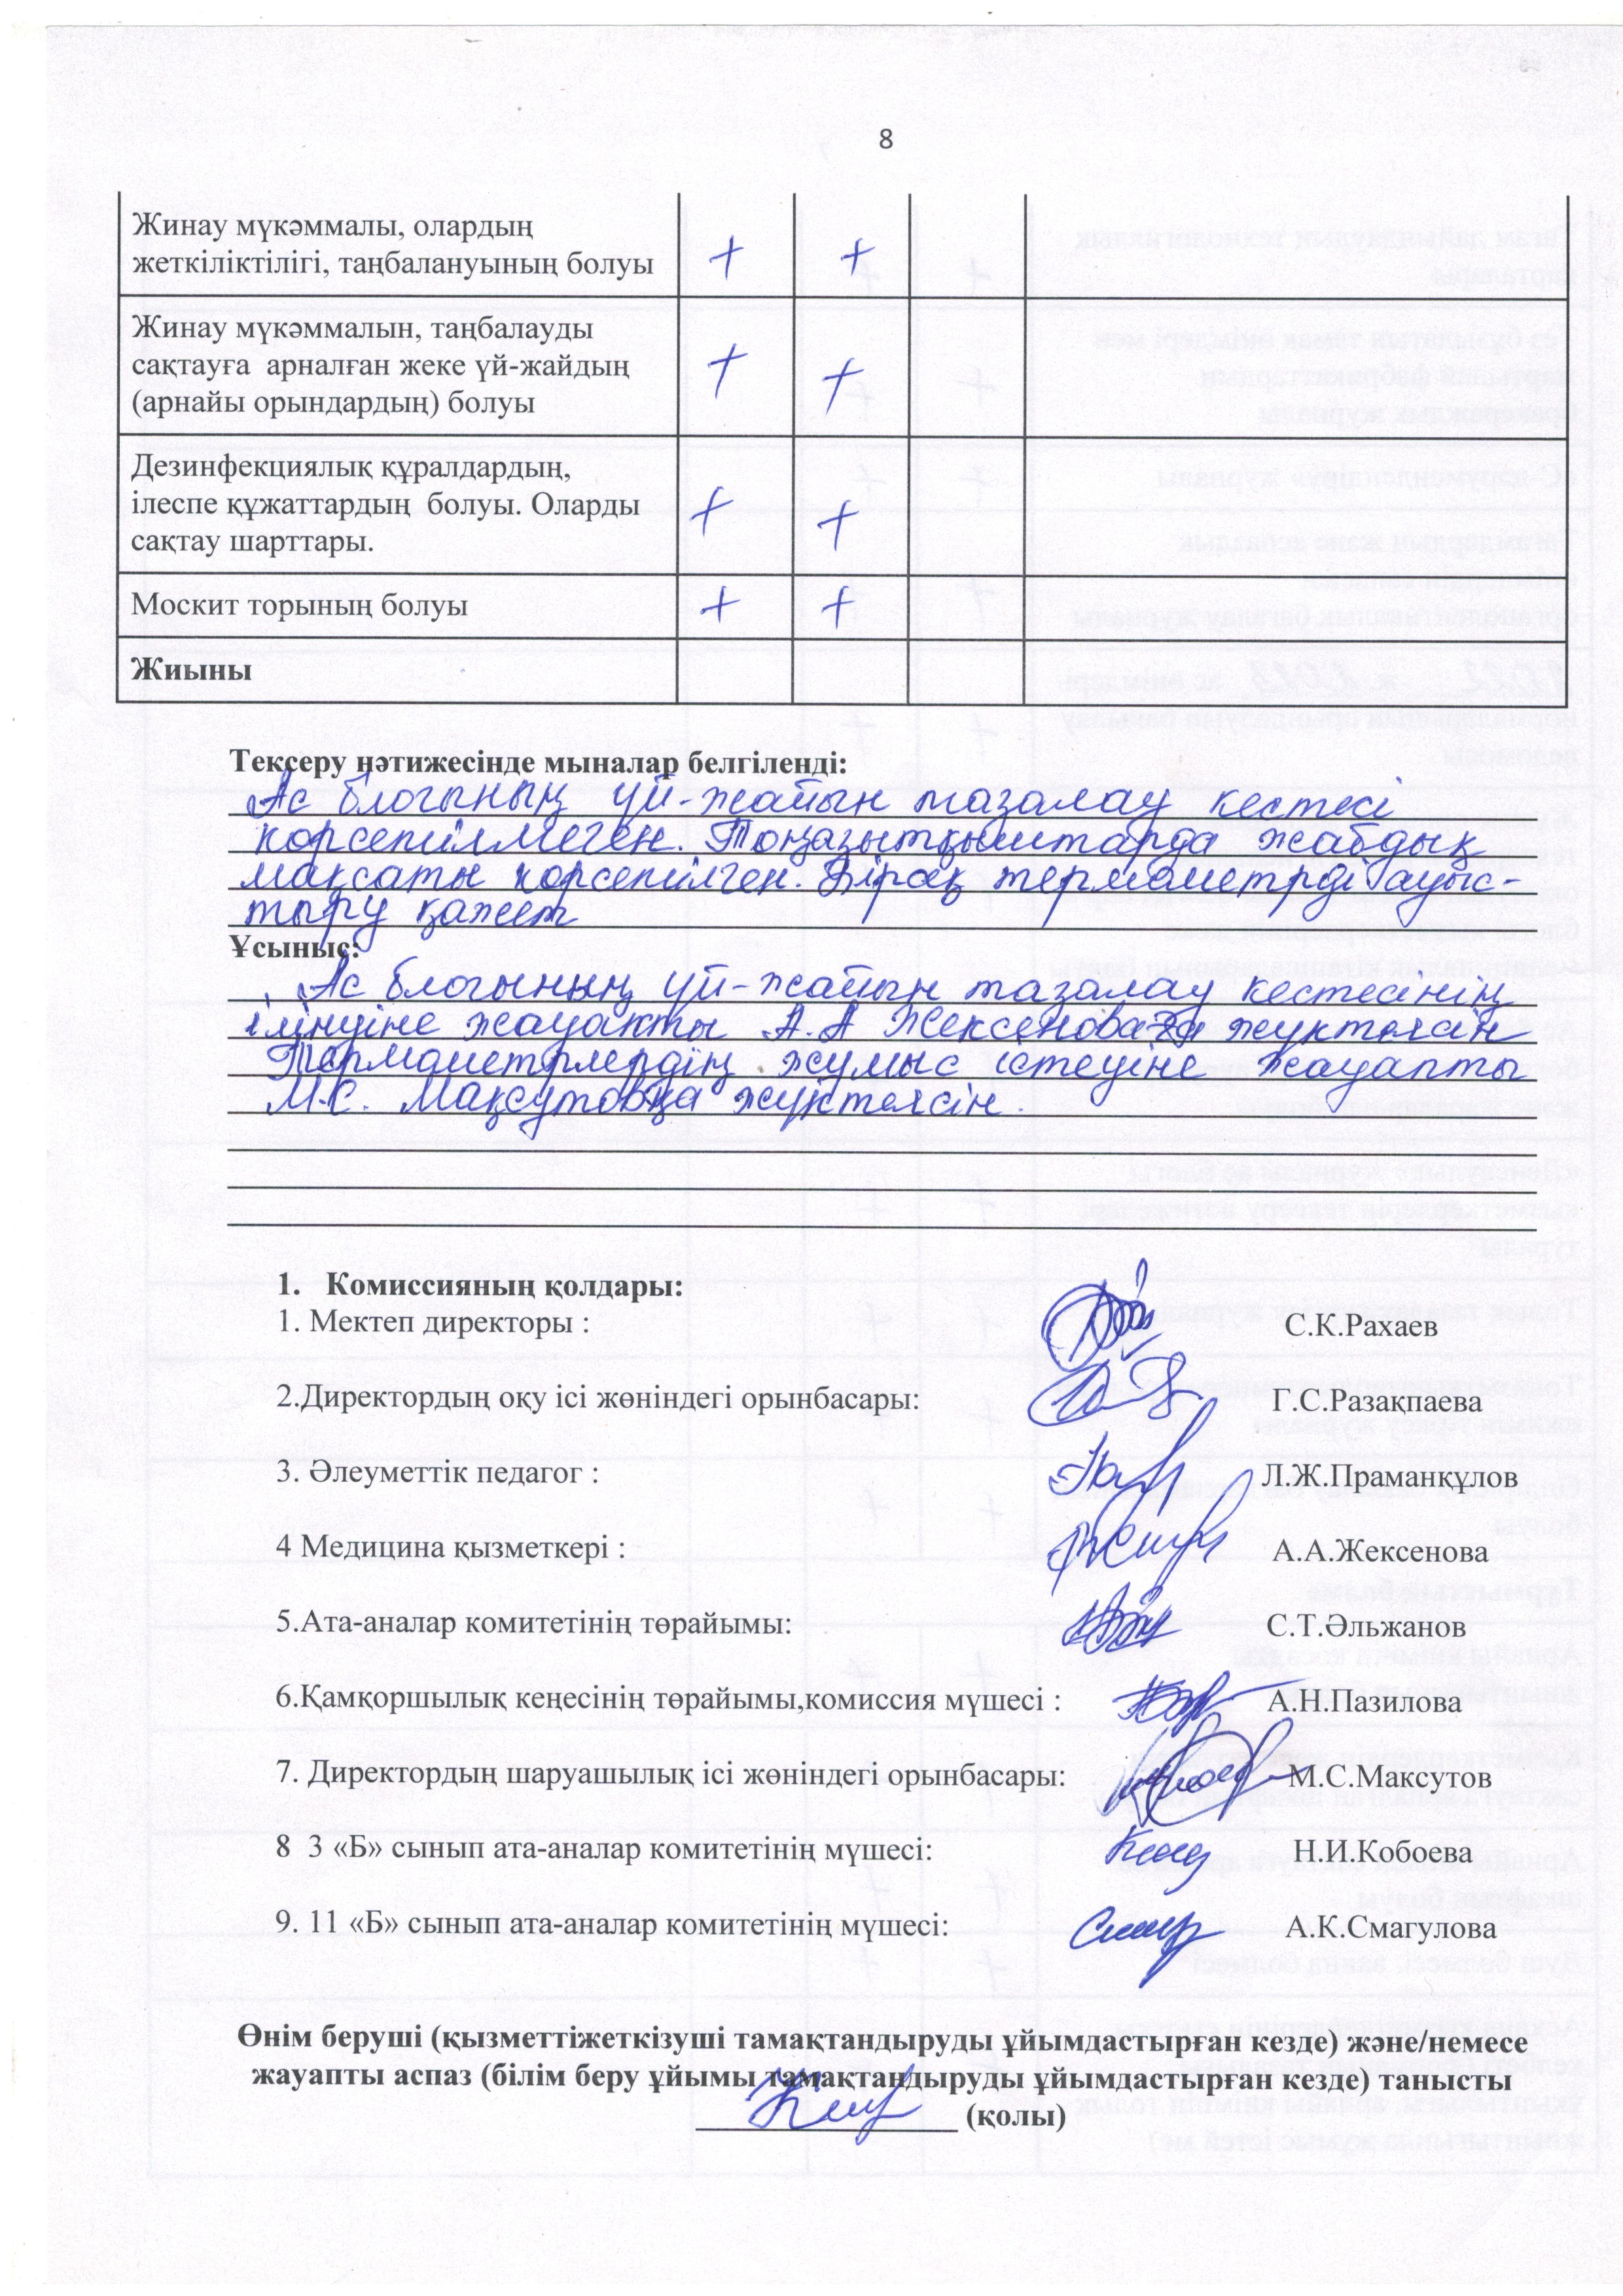 8
Жинау мүкәммалы, олардың
жеткіліктілігі, таңбалануының болуы + +
Жинау мүкәммалын, таңбалауды
сақтауға арналған жеке үй-жайдың
(арнайы орындардың) болуы + +
Дезинфекциялық құралдардың,
ілеспе құжаттардың болуы. Оларды
сақтау шарттары. + +
Москит торының болуы + +
Жиыны
Тексеру нәтижесінде мыналар белгіленді:
Ас блогының үй-жайын тазалау кестесі
көрсетілмеген. Тоңазытқыштарда жабдық
мақсаты көрсетілген. Бірақ термометрді ауыс-
тыру қажет
Ұсыныс:
Ас блогының үй-жайын тазалау кестесінің
ілінуіне жауапты А.А Жексеноваға жүктелсін
Термометрлердің жұмыс істеуіне жауапты
М.С. Мақсутовқа жүктелсін.
1. Комиссияның қолдары:
1. Мектеп директоры : С.К.Рахаев
2.Директордың оқу ісі жөніндегі орынбасары: Г.С.Разақпаева
3. Әлеуметтік педагог : Л.Ж.Праманқұлов
4 Медицина қызметкері : А.А.Жексенова
5.Ата-аналар комитетінің төрайымы: С.Т.Әльжанов
6.Қамқоршылық кеңесінің төрайымы,комиссия мүшесі : А.Н.Пазилова
7. Директордың шаруашылық ісі жөніндегі орынбасары: М.С.Максутов
8 3 «Б» сынып ата-аналар комитетінің мүшесі: Н.И.Кобоева
9. 11 «Б» сынып ата-аналар комитетінің мүшесі: А.К.Смагулова
Өнім беруші (қызметтіжеткізуші тамақтандыруды ұйымдастырған кезде) және/немесе
жауапты аспаз (білім беру ұйымы тамақтандыруды ұйымдастырған кезде) танысты
(қолы)